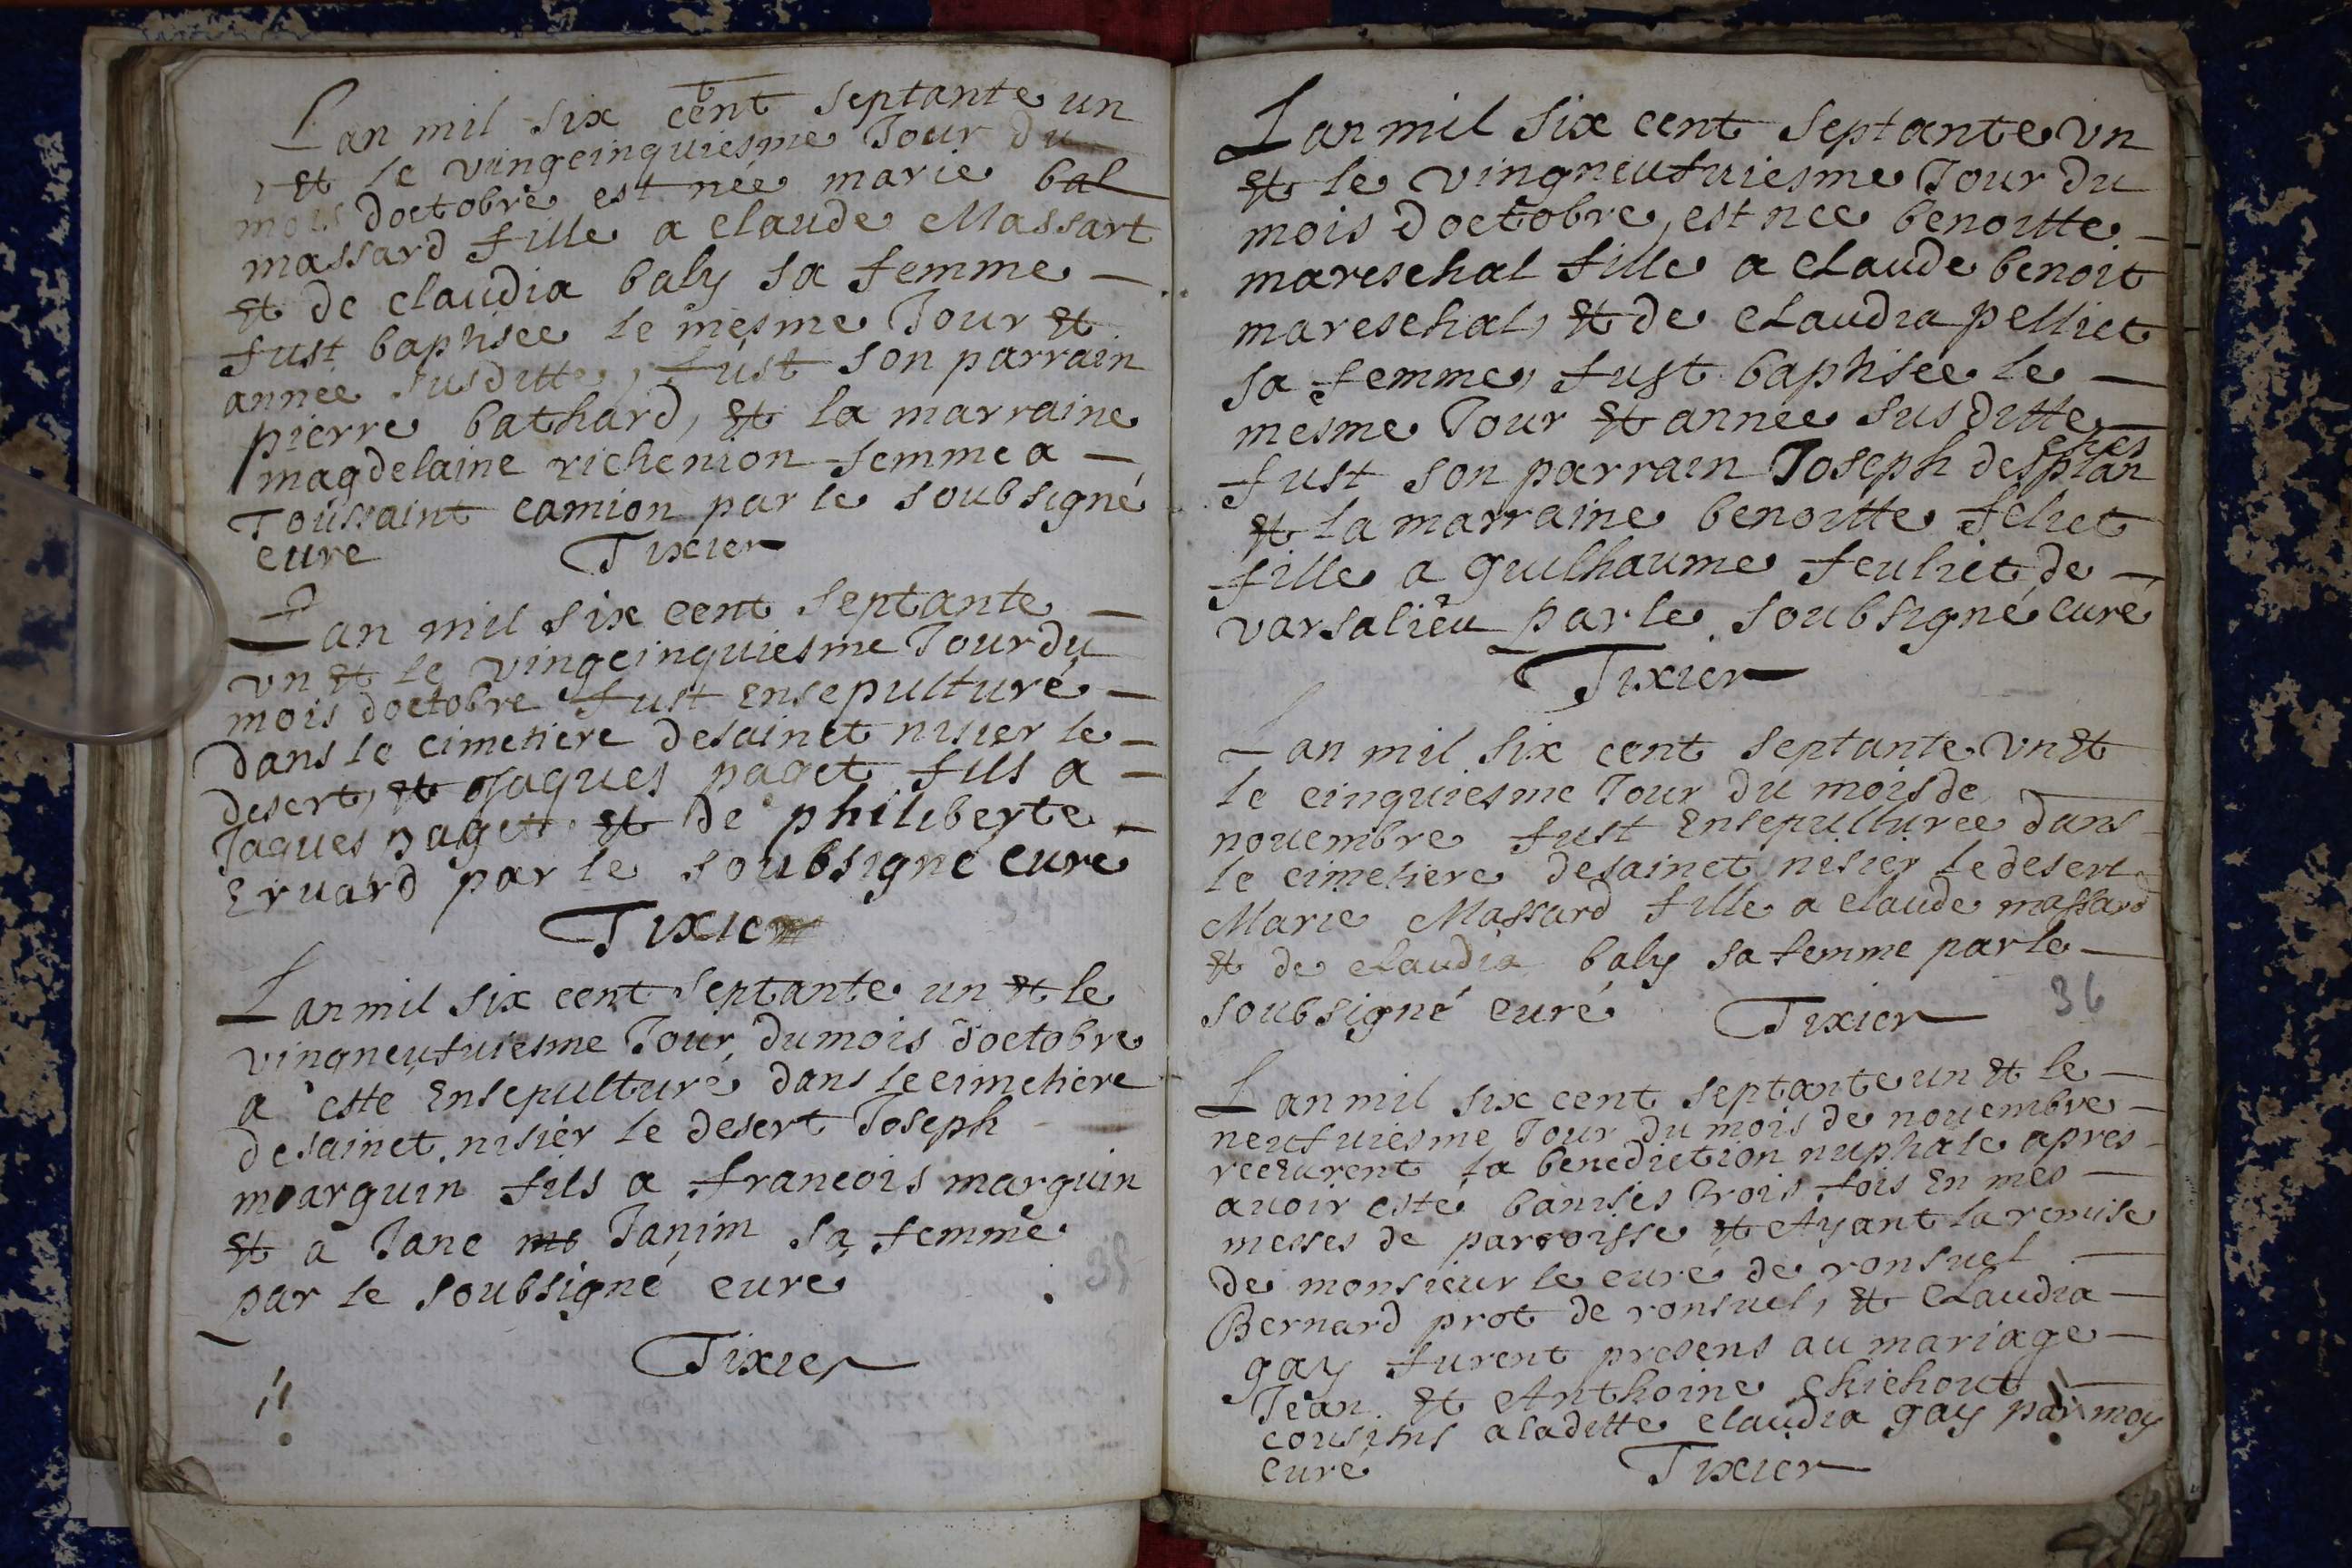 Lan mil six cent septante un
et le vingcinquiesme Jour du
mois doctobre est née marie bal
massard fille a claude Massart
et de claudia baly sa femme
fust baptisee le mesme Jour et
annee susditte, fust son parrain
pierre bathard, et la marraine
magdelaine richenion femme a
Toussaint camion par le soubsigné
cure Tixier
Lan mil six cent septante
vn et le vingcinquiesme Jour du
mois doctobre fust ensepulturé
dans le cimetiere desainct nisier le
desert, et Jaques paget fils a
Jaques paget et de philiberte
Eruard par le soubsigné curé
Tixier
Lan mil six cent septante un et le
vingneufuiesme Jour du mois doctobre
a esté Ensepulturé dans le cimetiere
desainct nisier le desert Joseph
marguin fils a francois marguin
et a Jane me Janim sa femme
par le soubsigné cure
35
Tixier
Lan mil six cent septante vn
et le vingneufuiesme Jour du
mois doctobre, est nee benoitte
mareschal fille a claude benoit
mareschal, et de claudia pellict
sa femme, fust baptisee le
mesme Jour et annee susditte
fust son parrain Joseph desplanches
et la marraine benoitte feliet
fille a guilhaume feuliet de
varsalieu par le soubsigné curé
Tixier
Lan mil six cent septante vn et
le cinquiesme Jour du mois de
nouembre fust Ensepulturee dans
le cimetiere desainct nisier le desert
Marie Massard fille a claude massard
et de claudia baly sa femme par le
soubsigné curé Tixier
36
Lan mil six cent septante un et le
neufuiesme Jour du mois de nouembre
receurent la benediction nuptiale apres
auoir esté bannies trois fois En mes
messes de parroisse et Ayant la remise
de monsieur le curé de ronsuel
Bernard prot de ronsuel, et claudia
gay furent presens au mariage
Jean et Anthoine chichout
cousins a laditte claudia gay par moy
curé Tixier